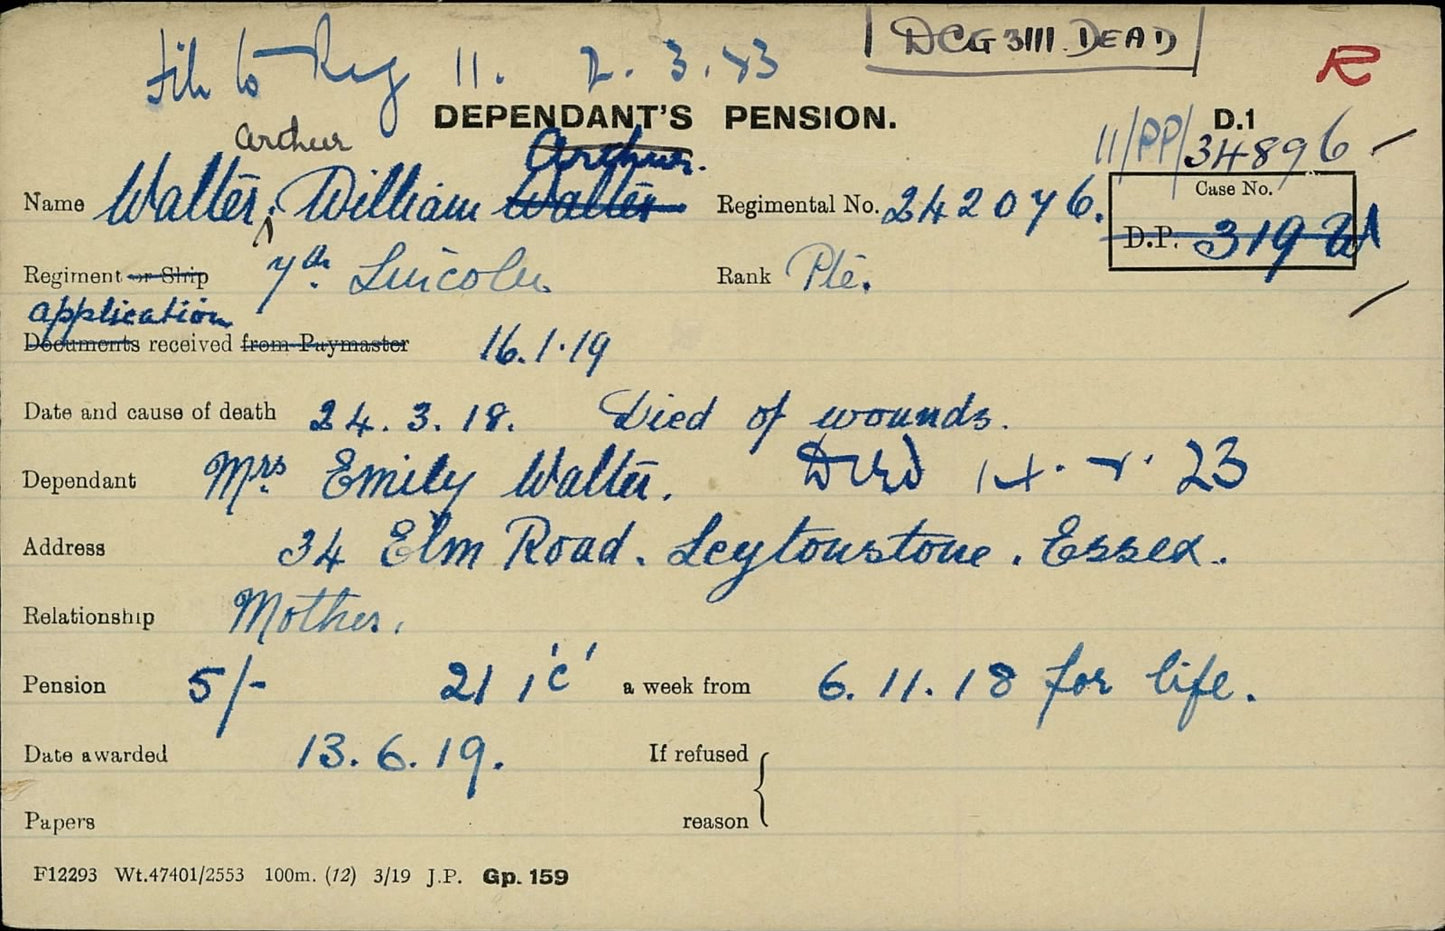 DCG 3111 DEAD
R
File to Reg 11. 2.3.23
DEPENDANT'S PENSION. D.1
11/PP/34896
Arthur
Arthur.
Name Walter, William Walter Regimental No. 242076.
Case No.
D.P. 319
Regiment or Ship 7th. Lincoln. Rank Pte.
application
Documents received from Paymaster 16.1.19
Date and cause of death 24.3.18. Died of wounds.
Dependant Mrs. Emily Walter. Died 23
Address 34 Elm Road. Leytonstone. Essex.
Relationship Mother.
Pension 5/- 21 1 'C' a week from 6.11.18 for life.
Date awarded 13.6.19. If refused
Papers reason
F12293 Wt.47401/2553 100m. (12) 3/19 J.P. Gp. 159